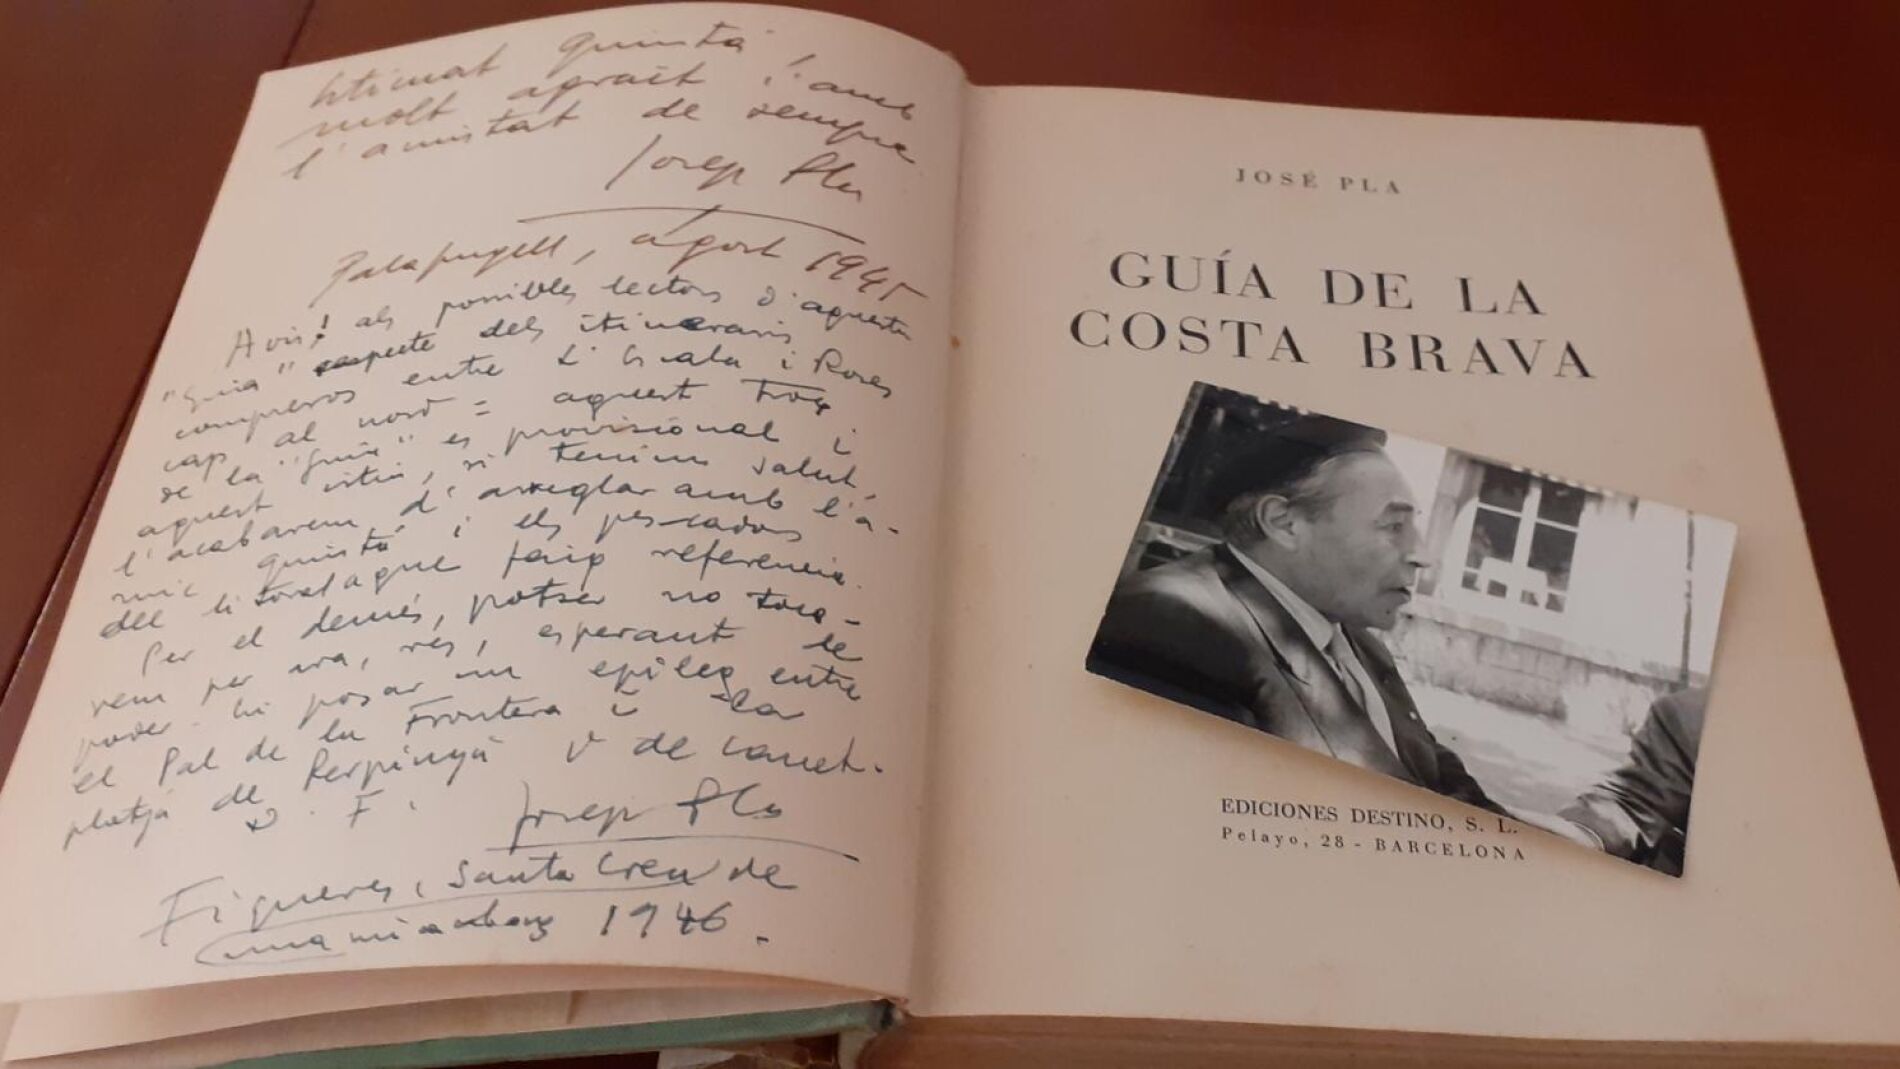 Estimat Quintà! amb
molt agraït
l'amistat de sempre
Josep Pla
Palafrugell, agost 1945
Avis! als possibles lectors d'aquesta
"Guia" respecte dels itineraris
compresos entre L'Escala i Roses
cap al nord = aquest troç
de la "Guia" es provisional i
aquest istiu, si tenim salut,
l'acabarem d'arreglar amb l'a-
mic Quintà i els pescadors
del litoral a que faig referencia.
Per el demés, potser no toca-
rem per ara, res, esperant de
poder-hi posar un epileg entre
el Pal de la Frontera i la
platja de Perpinyà v de Canet.
D. F.
Josep Pla
Figueres, Santa Creu de
1946.
JOSÉ PLA
GUÍA DE LA
COSTA BRAVA
EDICIONES DESTINO, S. L.
Pelayo, 28 - BARCELONA